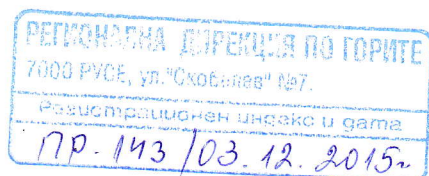 РЕГИОНАЛНА ДИРЕКЦИЯ ПО ГОРИТЕ
7000 РУСЕ, ул."Скобелев" №7.
Регистрационен индекс и дата
ПР. 143 / 03. 12. 2015г